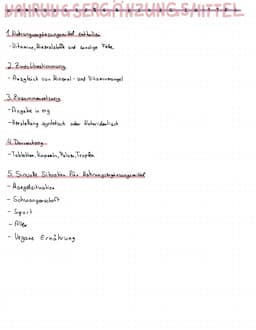 NAHRUNGSERGÄNZUNGSMITTEL
1. Nahrungsergänzungsmittel enthalten
- Vitamine, Mineralstoffe und sonstige
2. Zweckbestimmung
- Ausgleich von Mineral- und Vitaminmangel
3. Zusammensetzung
- Angabe in mg
- Herstellung synthetisch oder Naturidentisch
4. Darreichung
- Tabletten, Kapseln, Pulver, Tropfen
5. Sinnvolle Situation für Nahrungsergänzungsmittel
- Schwangerschaft
- Sport
- Alter
- Vegane Ernährung